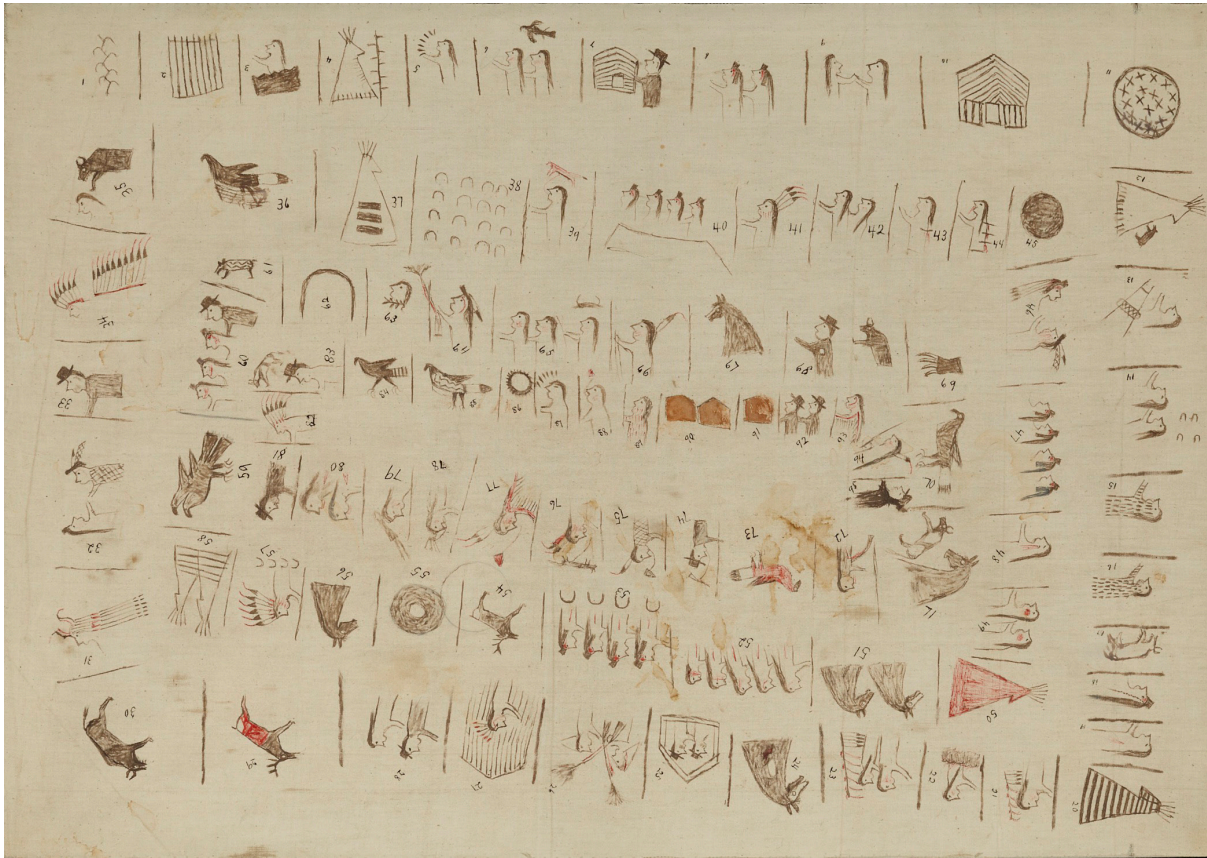 1
2
3
4
5
6
7
9
10
11
12
13
14
15
16
20
21
22
23
24
25
26
27
28
29
30
31
32
33
34
35
36
37
38
39
40
41
42
43
44
45
46
47
48
49
50
51
52
53
54
55
56
57
58
59
60
61
62
63
64
65
66
67
68
69
70
71
72
73
74
75
76
77
78
79
80
81
82
83
84
85
86
87
88
89
90
91
92
93
94
95